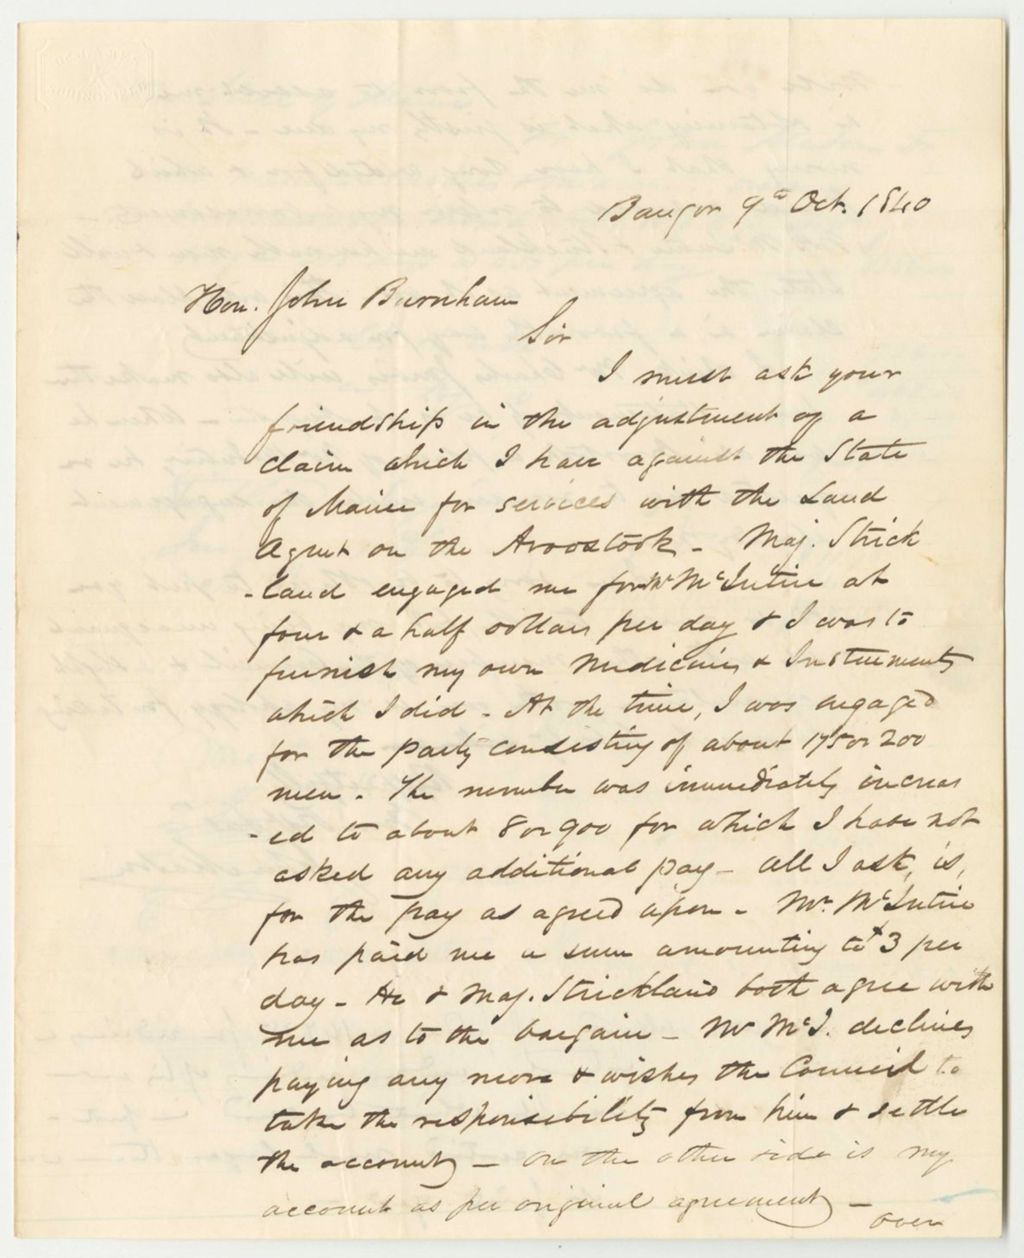 Bangor 9th Oct. 1840
Hon. John Burnham
Sir
I must ask your
friendship in the adjustment of a
claim which I have against the State
of Maine for services with the Land
Agent on the Aroostook - Maj. Strick
-land engaged me for Mr McIntire at
four & a half dollars per day & I was to
furnish my own Medicines & Instruments
which I did - At the time, I was engaged
for the party consisting of about 175 or 200
men - The number was immediately increas
-ed to about 8 or 900 for which I have not
asked any additional pay - all I ask, is,
for the pay as agreed upon - Mr. McIntire
has paid me a sum amounting to $3 per
day - He & Maj. Strickland both agree with
me as to the bargain - Mr McI. declines
paying any more & wishes the Council to
take the responsibility from him & settle
the account - On the other side is my
account as per original agreement -
over